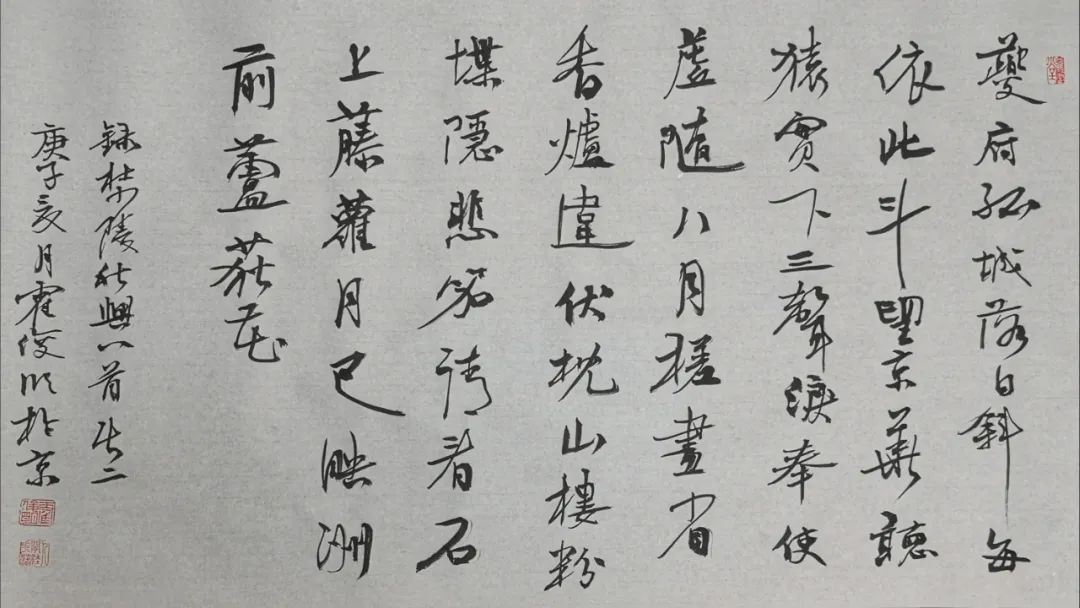 夔府孤城落日斜每
依北斗望京華聽
猿實下三聲淚奉使
虛隨八月槎畫省
香爐違伏枕山樓粉
堞隱悲笳請看石
上藤蘿月已映洲
前蘆荻花
録杜少陵秋興八首其二
庚子亥月霍俊明於京